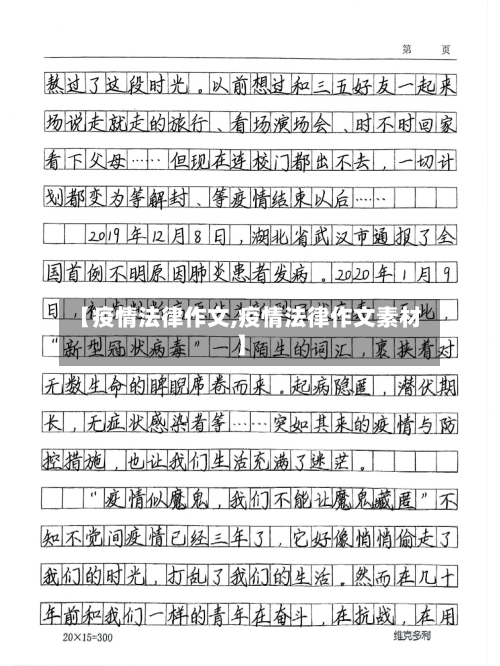 第 页
熬过了这段时光。以前想过和三五好友一起来
场说走就走的旅行、看场演场会、时不时回家
看下父母……但现在连校门都出不去，一切计
划都变为等解封、等疫情结束以后……
2019年12月8日，湖北省武汉市通报了全
国首例不明原因肺炎患者发病。2020年1月9
日，
此，
【疫情法律作文,疫情法律作文素材
】
“新型冠状病毒”一个陌生的词汇，裹挟着对
无数生命的睥睨席卷而来。起病隐匿，潜伏期
长，无症状感染者等……突如其来的疫情与防
控措施，也让我们生活充满了迷茫。
“疫情似魔鬼，我们不能让魔鬼藏匿”不
知不觉间疫情已经三年了，它好像悄悄偷走了
我们的时光，打乱了我们的生活。然而在几十
年前和我们一样的青年在奋斗，在抗战，在用
20×15=300
维克多利